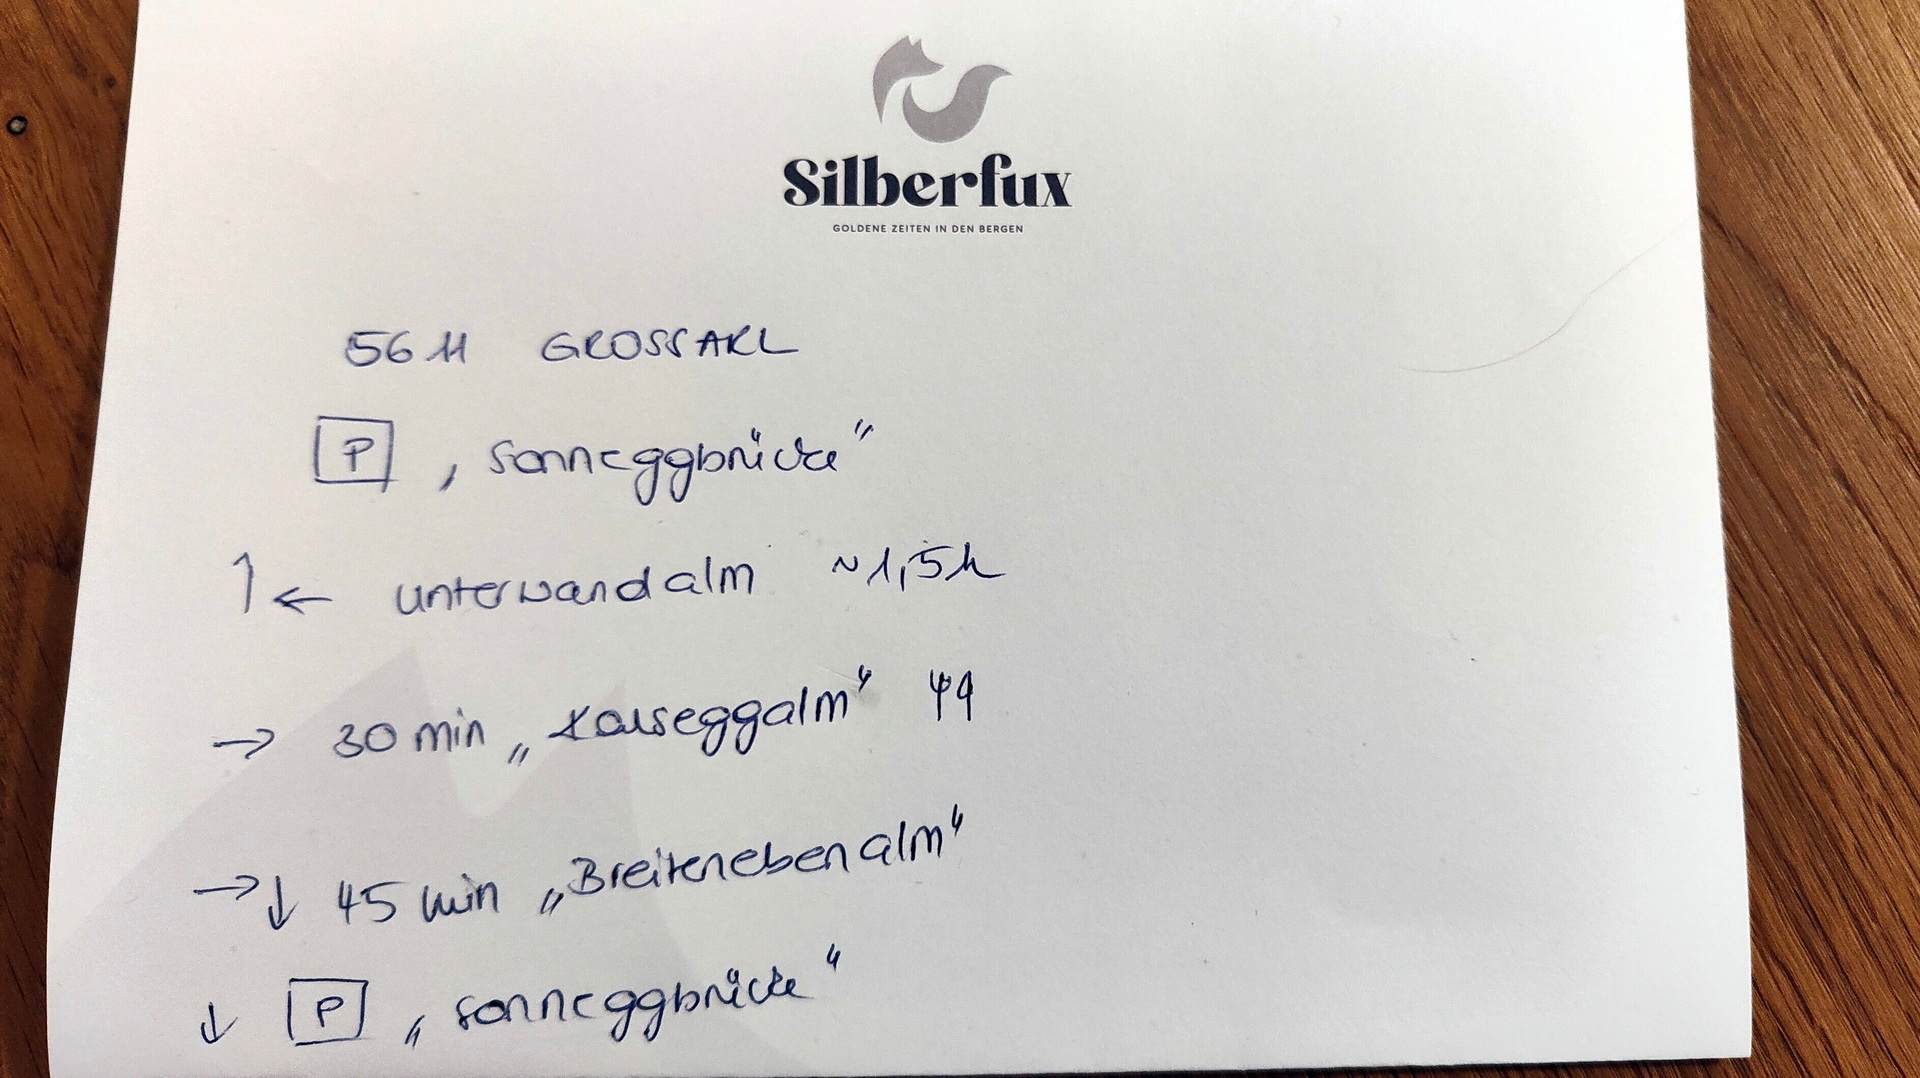 Silberfux
GOLDENE ZEITEN IN DEN BERGEN
5611 GROSSARL
P „Sonneggbrücke“
↑ ← Unterwandalm ~1,5h
→ 30 min „Karseggalm“
→ ↓ 45 min „Breitenebenalm“
↓ P „Sonneggbrücke“